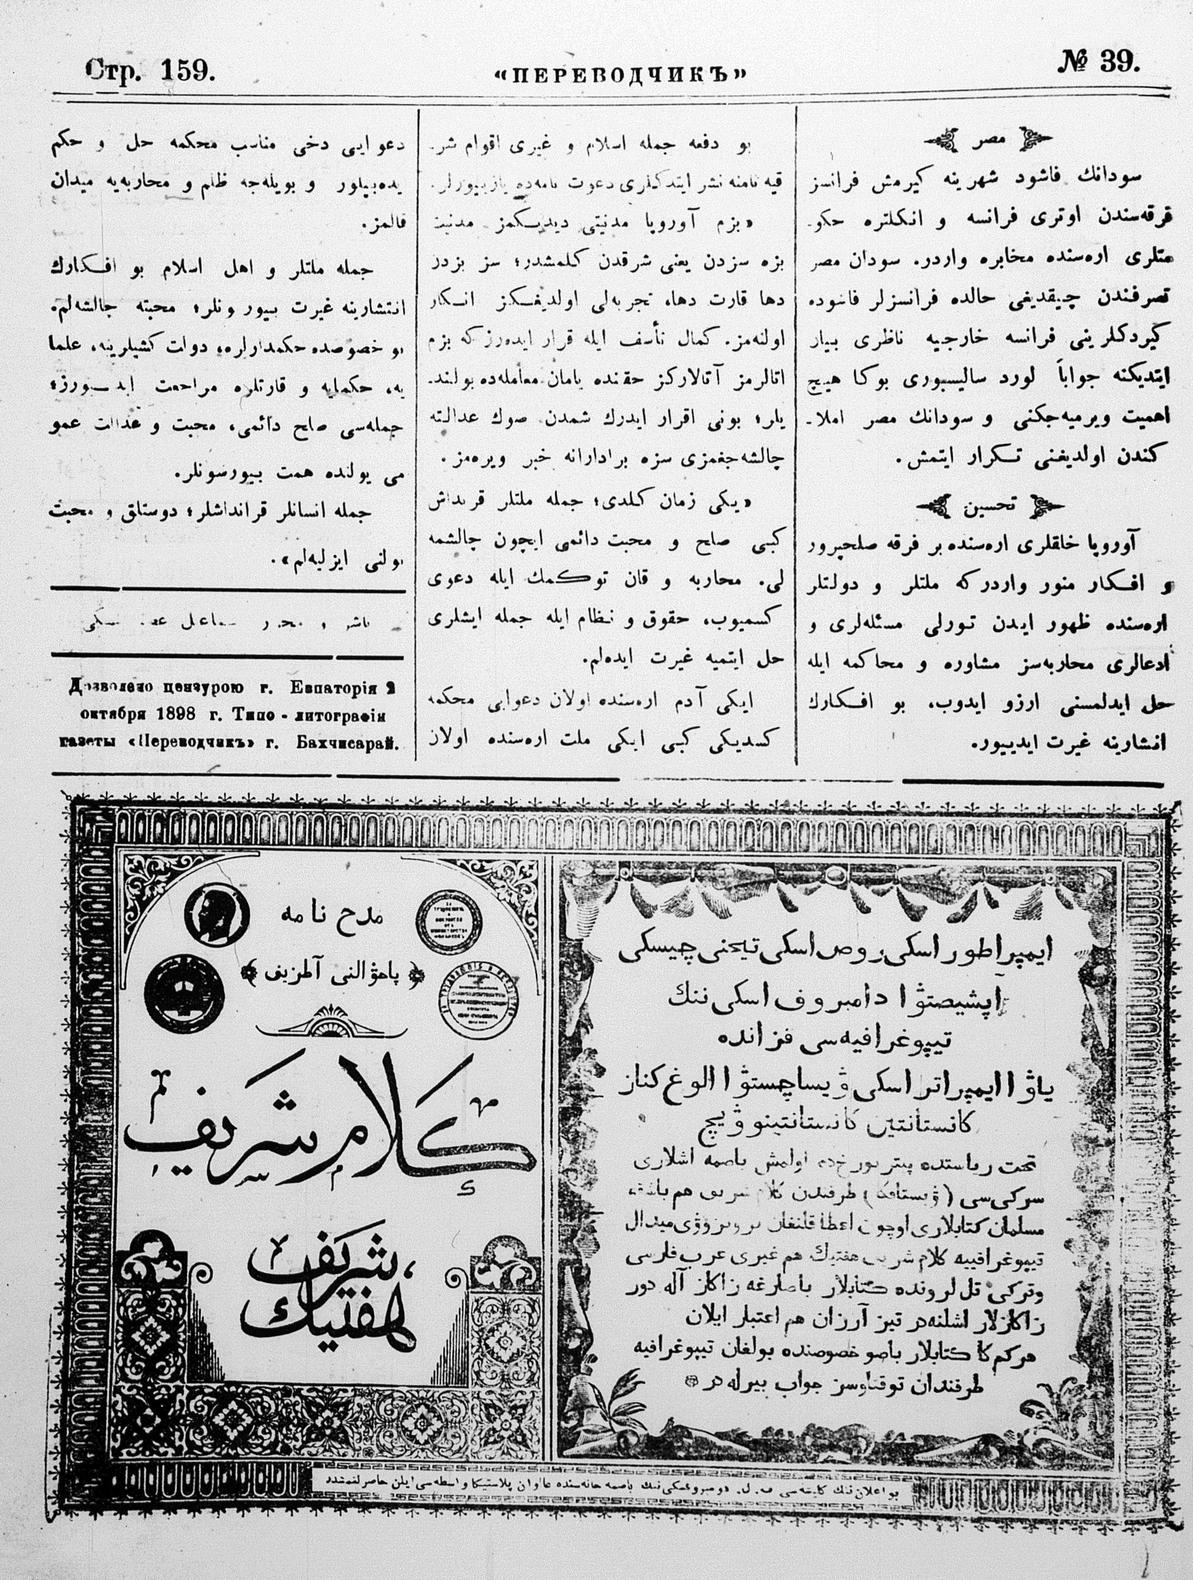 Стр. 159.
«ПЕРЕВОДЧИКЪ»
№ 39.
مصر
سودانك فاشود شهرينه كيرمش فرانسز
فرقه‌سندن اوتری فرانسه و انكلتره حكو-
متلری اره‌سنده مخابره واردر. سودان مصر
تصرفندن چیقدیغی حالده فرانسزلر فاشوده
كیردكلرینی فرانسه خارجیه ناظری بیار
ایتدیكنه جواباً لورد سالیسبوری بوكا هیچ
اهمیت ویرمیه‌جكنی و سودانك مصر املا-
كندن اولدیغنی تكرار ایتمش.
تحسین
آوروپا خلقلری اره‌سنده بر فرقه صلحپرور
و افكار منور واردركه ملتلر و دولتلر
اره‌سنده ظهور ایدن تورلی مسئله‌لری و
ادعالری محاربه‌سز مشاوره و محاكمه ایله
حل ایدلمسنی ارزو ایدوب، بو افكارك
انشارینه غیرت ایدییور.
بو دفعه جمله اسلام و غیری اقوام شر-
قیه نامنه نشر ایتدكلری دعوت نامه‌ده یازییورلر.
«بزم آوروپا مدنیتی دیدیكمز مدنیت
بزه سزدن یعنی شرقدن كلمشدر؛ سز بزدن
دها قارت دها، تجربه‌لی اولدیغكز انكار
اولنه‌مز. كمال تأسف ایله قرار ایده‌رز كه بزم
اتالرمز آتالاركز حقنده یامان معامله‌ده بولند-
یلر؛ بونی اقرار ایدرك شمدن صوك عدالته
چالشه‌جغمزی سزه برادارانه خبر ویره‌مز.
«یكی زمان كلدی؛ جمله ملتلر قرنداش
كبی صلح و محبت دائمی ایچون چالشمه
لی. محاربه و قان توكمك ایله دعوی
كسمیوب، حقوق و نظام ایله جمله ایشلری
حل ایتمیه غیرت ایده‌لم.
ایكی آدم اره‌سنده اولان دعوایی محكمه
كسدیكی كبی ایكی ملت اره‌سنده اولان
دعوایی دخی مناسب محكمه حل و حكم
یده‌بیلور و بویله‌جه ظلم و محاربه‌یه میدان
قالمز.
جمله ملتلر و اهل اسلام بو افكارك
انتشارینه غیرت بیورونلر؛ محبته چالشه‌لم.
بو خصوصده حكمدارلره، دولت كشیلرینه، علما
یه، حكمایه و قارتلره مراجعت ایدیورز؛
جمله‌سی صلح دائمی، محبت و عدالت عمو
می یولنده همت بیورسونلر.
جمله انسانلر قرانداشلر؛ دوستلق و محبت
یولنی ایزلیه‌لم».
ناشر و محرر
Дозволено цензурою г. Евпаторія 2
октября 1898 г. Типо-литографія
газеты «Переводчикъ» г. Бахчисарай.
مدح نامه
كلام شریف
هفتیك شریف
ایمپراطوراسكی روص اسكی تیخنی چیسكی
تیپوغرافیه‌سی قزانده
كانستانتین كانستانتینوویچ
تحت ریاستده پیتربورخده اولمش باصمه اشلاری
تیپوغرافییه كلام شریف هفتیك هم غیری عرب فارسی
وتركی تل لرونده كتابلار باصارغه زاكاز آله دور
زاكازلار اشلنه‌در تیز آرزان هم اعتبار ایلان
هركم كا كتابلار باصو خصوصنده بولغان تیپوغرافیه
طرفندان توقتاوسز جواب بیرله‌در